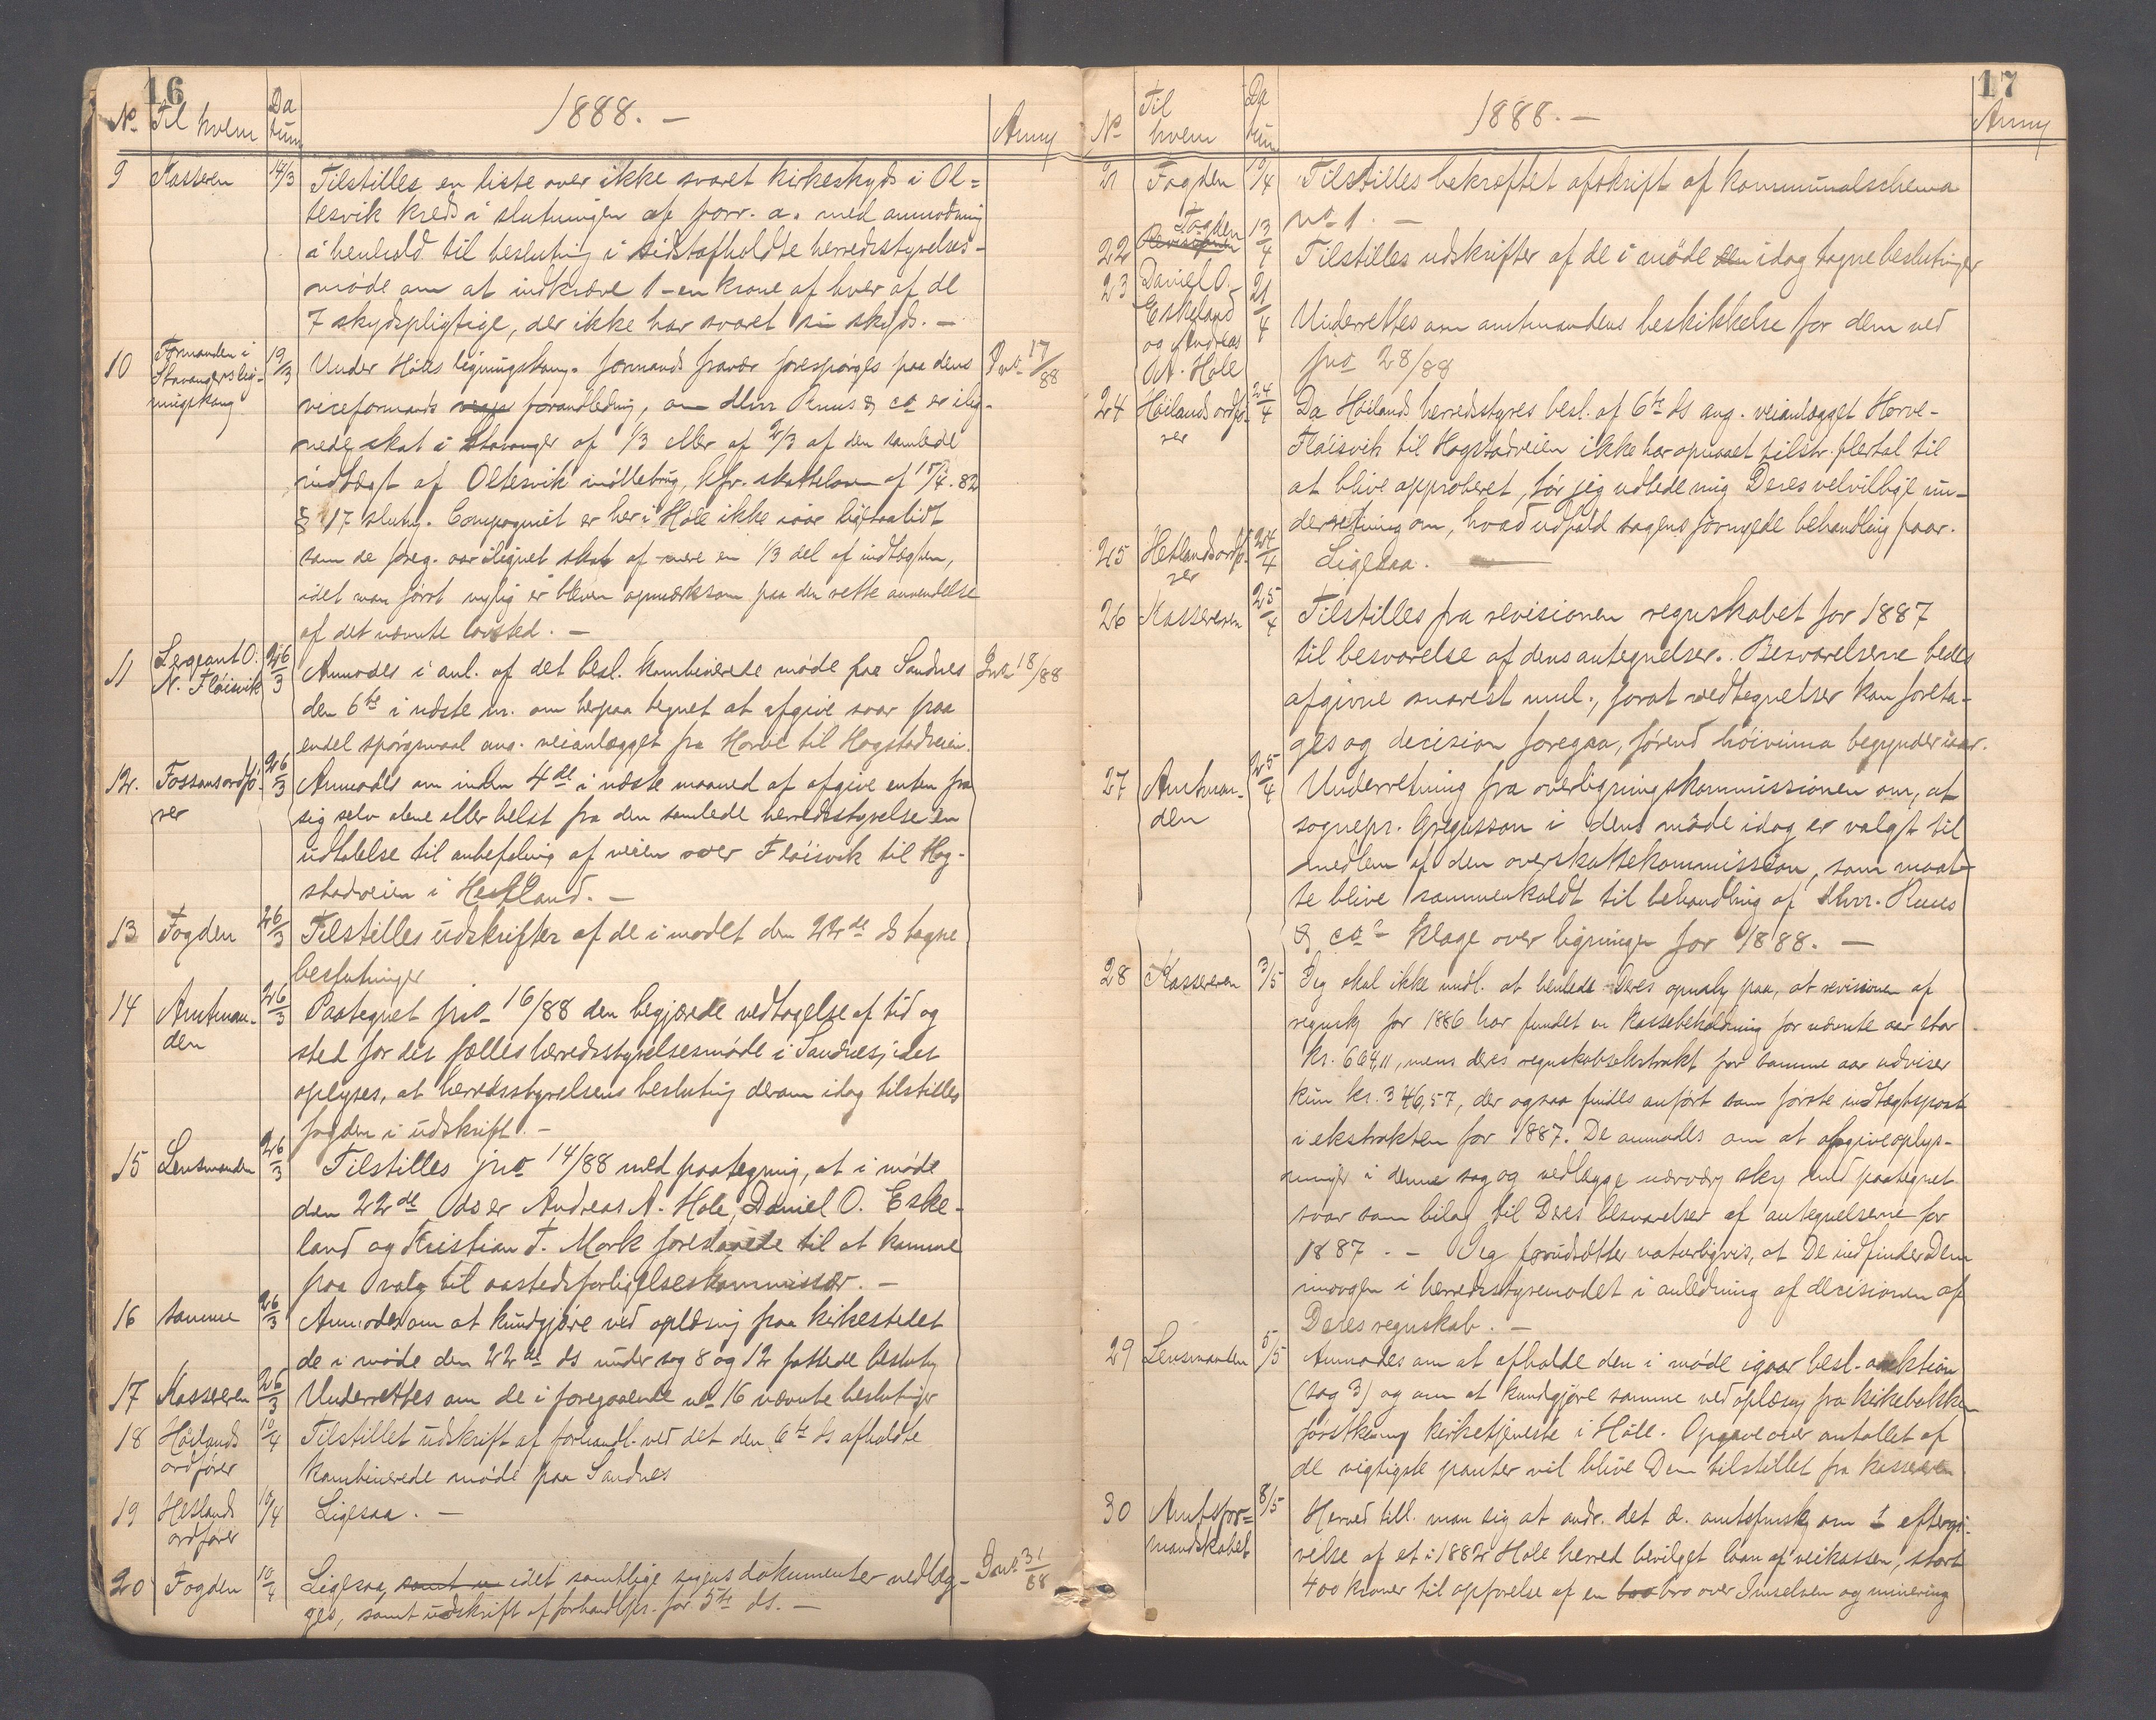 16
No Til hvem Da tum 1888. — Anm
9 Kasseren 14/3 Tilstilles en liste over ikke svaret kirkeskyds i Ol=
tesvik kreds i slutningen af forr. a. med anmodning
i henhold til beslutnig i sidstafholdte herredsstyrelses-
møde om at indkræve 1 - en krone af hver af de
7 skydspligtige, der ikke har svaret sin skyds. —
10 Formanden i Stavangers lig- 19/3 Under Høles ligningskom. formands fravær forespørges paa dens Jno 17/88
ningskom viceformands foranledning, om dhrr Ruus & co er ilig-
nede skat i Stavanger af 1/3 eller af 2/3 af den samlede
indtægt af Oltesvik möllebrug, kfr. skatteloven af 15/4. 82
§ 17 slutn. Compagniet er her i Höle ikke iaar ligesaalidt
som de foreg. aar ilignet skat af mere en 1/3 del af indtægten,
idet man først nylig er bleven opmærksom paa den rette anvendelse
af det nævnte lovsted. —
11 Sergeant O. 26/3 Anmodes i anl. af det besl. kombinerede møde paa Sandnes Jno 18/88
N. Fløisvik den 6te i næste m. om herpaa tegnet at afgive svar paa
endel spörgsmaal ang. veianlægget fra Horve til Hogstadveien.
12. Fossansordfö- 26/3 Anmodes om inden 4de i næste maaned at afgive enten fra
rer sig selv alene eller helst fra den samlede herredsstyrelse en
udtalelse til anbefaling af veien over Flöisvik til Hog-
stadveien i Hetland. —
13 Fogden 26/3 Tilstilles udskrifter af de i mødet den 22de ds tagne
beslutninger
14 Amtman- 26/3 Paategnet jno 16/88 den begjærede vedtagelse af tid og
den sted for det fælles herredsstyrelsesmøde i Sandnes, idet
oplyses, at herredsstyrelsens beslutnig derom idag tilstilles
fogden i udskrift. —
15 Lensmanden 26/3 Tilstilles jno 14/88 med paategning, at i møde
den 22de ds er Andreas A. Hole, Daniel O. Eske-
land og Kristian T. Mork foreslaaede til at komme
paa valg til aastedsforligelseskommissær. —
16 samme 26/3 Anmodes om at kundgjøre ved oplæsnig paa kirkestedet
de i møde den 22de ds under sag 8 og 12 fattede beslutn
17 Kasseren 26/3 Underrettes om de i foregaaende no 16 nævnte beslutniger
18 Höilands 10/4 Tilstillet udskrift af forhandl. ved det den 6te ds afholdte
ordfører kombinerede møde paa Sandnes
19 Hetlands 10/4 Ligesaa. —
ordfører
20 Fogden 10/4 Ligesaa, samt idet samtlige sagens dokumenter vedlæg- Jno 31/88
ges, samt udskrift af forhandlgs. for 5te ds. —
17
No Til hvem Da tum 1888. — Anm
21 Fogden 13/4 Tilstilles bekræftet afskrift af kommunalschema
no 1. —
22 Revisionen Fogden 13/4 Tilstilles udskrifter af de i möde den idag tagne beslutninger
23 Daniel O. 21/4
Eskeland Underrettes om amtmandens beskikkelse for dem ved
og Andreas
A. Hole jno 28/88
24 Höilands ordfö- 24/4 Da Höilands herredsstyres besl. af 6te ds ang. veianlægget Horve-
rer Flöisvik til Hogstadveien ikke har opnaaet tilstr. flertal til
at blive approberet, tör jeg udbede mig Deres velvillige un-
derretning om, hvad udfald sagens fornyede behandling faar.
25 Hetlands ordfø- 24/4 Ligesaa. —
rer
26 Kassereren 25/4 Tilstilles fra revisionen regnskabet for 1887
til besvarelse af dens antegnelser. Besvarelserne bedes
afgivne snarest mul., forat vedtegnelser kan foreta-
ges og decision foregaa, förend höivinna begynder iaar.
27 Amtman- 25/4 Underretning fra overligningskommissionen om, at
den sognepr. Gregusson i dens möde idag er valgt til
medlem af den overskattekommission, som maat-
te blive sammenkaldt til behandling af dhrr. Ruus
& cos klage over ligningen for 1888. —
28 Kassereren 3/5 Jeg skal ikke undl. at henlede Deres opmærk paa, at revisionen af
regnsk for 1886 har fundet en kassebeholdning for nævnte aar stor
kr. 664,11, mens deres regnskabsekstrakt for samme aar udviser
kun kr. 346,57, der ogsaa findes anført som første indtægtspost
i ekstrakten for 1887. De anmodes om at afgive oplys-
ninger i denne sag og vedlægge nærvær sky med paategnet
svar som bilag til Deres besvarelser af antegnelserne for
1887. — Jeg forudsætter naturligvis, at De indfinder Dem
imorgen i herredsstyremødet i anledning af decisionen af
Deres regnskab. —
29 Lensmanden 5/5 Anmodes om at afholde den i møde igaar besl. auktion
(sag 3) og om at kundgjøre samme ved oplæsng fra kirkebakken
førstkomg kirketjeneste i Höle. Opgave over antallet af
de vigtigste panter vil blive Dem tilstillet fra kasseren.
30 Amtsfor= 8/5 Herved till. man sig at andr. det d. amtsfmsk om eftergi-
mandskabet velse af et i 1882 Hole herred bevilget laan af veikassen, stort
400 kroner til opførelse af en bro over Imselven og minering